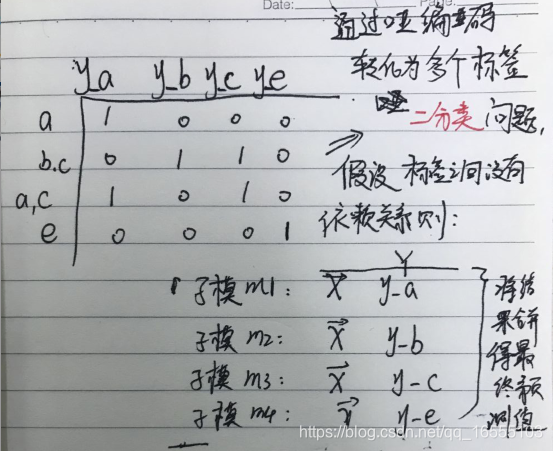 Date:
通过哑编码
转化为多个标签
二分类问题,
y_a y_b y_c y_e
a 1 0 0 0
b.c 0 1 1 0
a,c 1 0 1 0
e 0 0 0 1
⇒ 假设标签之间没有
依赖关系则:
Y
子模m1: X y_a
子模m2: X y_b
子模m3: X y_c
子模m4: X y_e
将结
果合并
得最
终预
测值
https://blog.csdn.net/qq_16555103